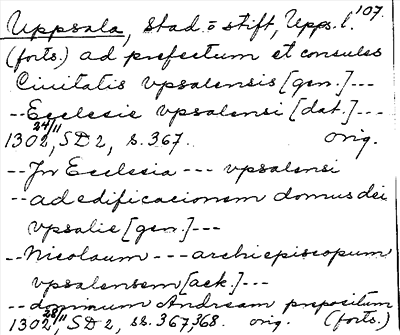 Uppsala, stad o stift, Upps. l. 107.
(forts.) ad prefectum et consules
Ciuitatis vpsalensis [gen.] ---
-- Ecclesie vpsalensi [dat.] ---
1302 24/11, SD 2, s. 367. orig.
-- Jn Ecclesia --- vpsalensi
-- ad edificacionem domus dei
vpsalie [gen.] ---
-- Nicolaum --- archiepiscopum
vpsalensem [ack.] ---
-- dominum Andream prepositum
1302 28/11, SD 2, ss. 367, 368. orig. (forts.)